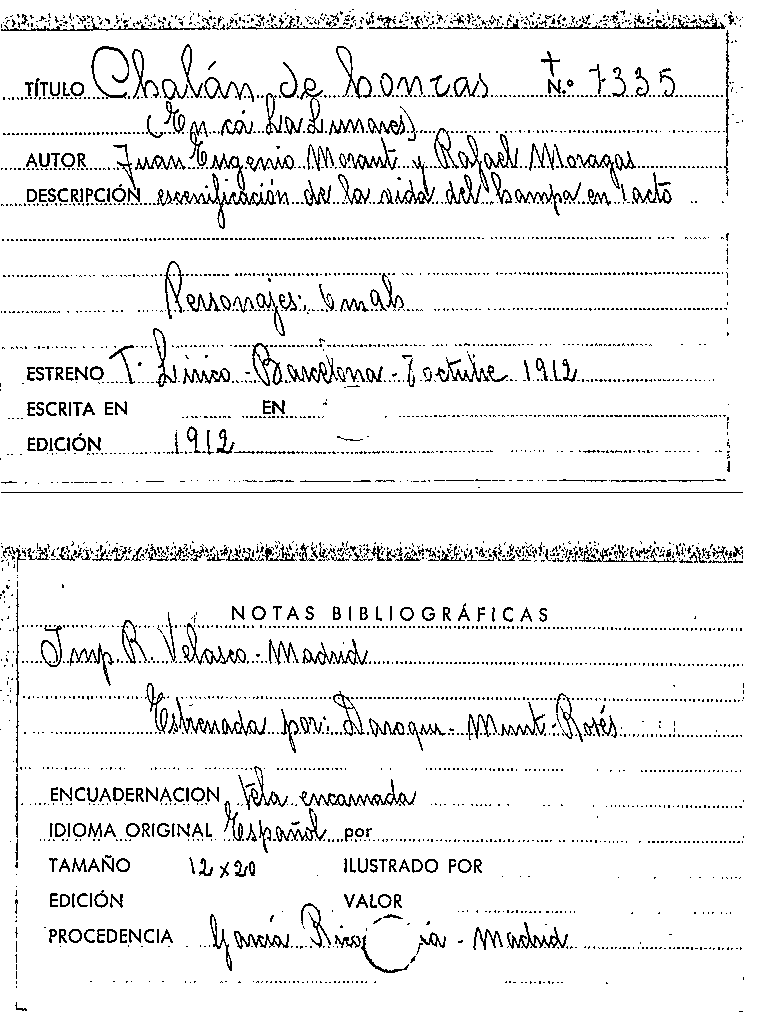 TÍTULO Chalán de honras N.º 7335
(En cá La Lunares)
AUTOR Juan Eugenio Morant y Rafael Moragas
DESCRIPCIÓN escenificación de la vida del hampa en 1 acto
Personajes: 6 mab
ESTRENO T. Lírico - Barcelona - 7 octubre 1912
ESCRITA EN EN
EDICIÓN 1912 —
NOTAS BIBLIOGRÁFICAS
Imp. R. Velasco - Madrid
Estrenada por: Daroqui - Munt-Rosés
ENCUADERNACION tela encarnada
IDIOMA ORIGINAL Español por
TAMAÑO 12 x 20 ILUSTRADO POR
EDICIÓN VALOR
PROCEDENCIA García Rico ía - Madrid